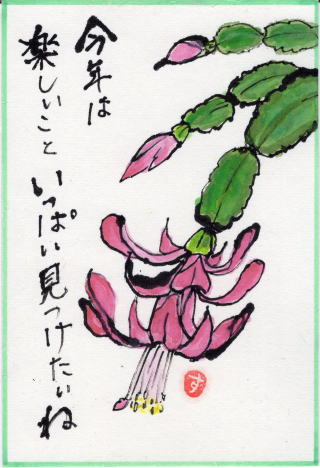 今年は
楽しいこと
いっぱい見つけたいね
ず